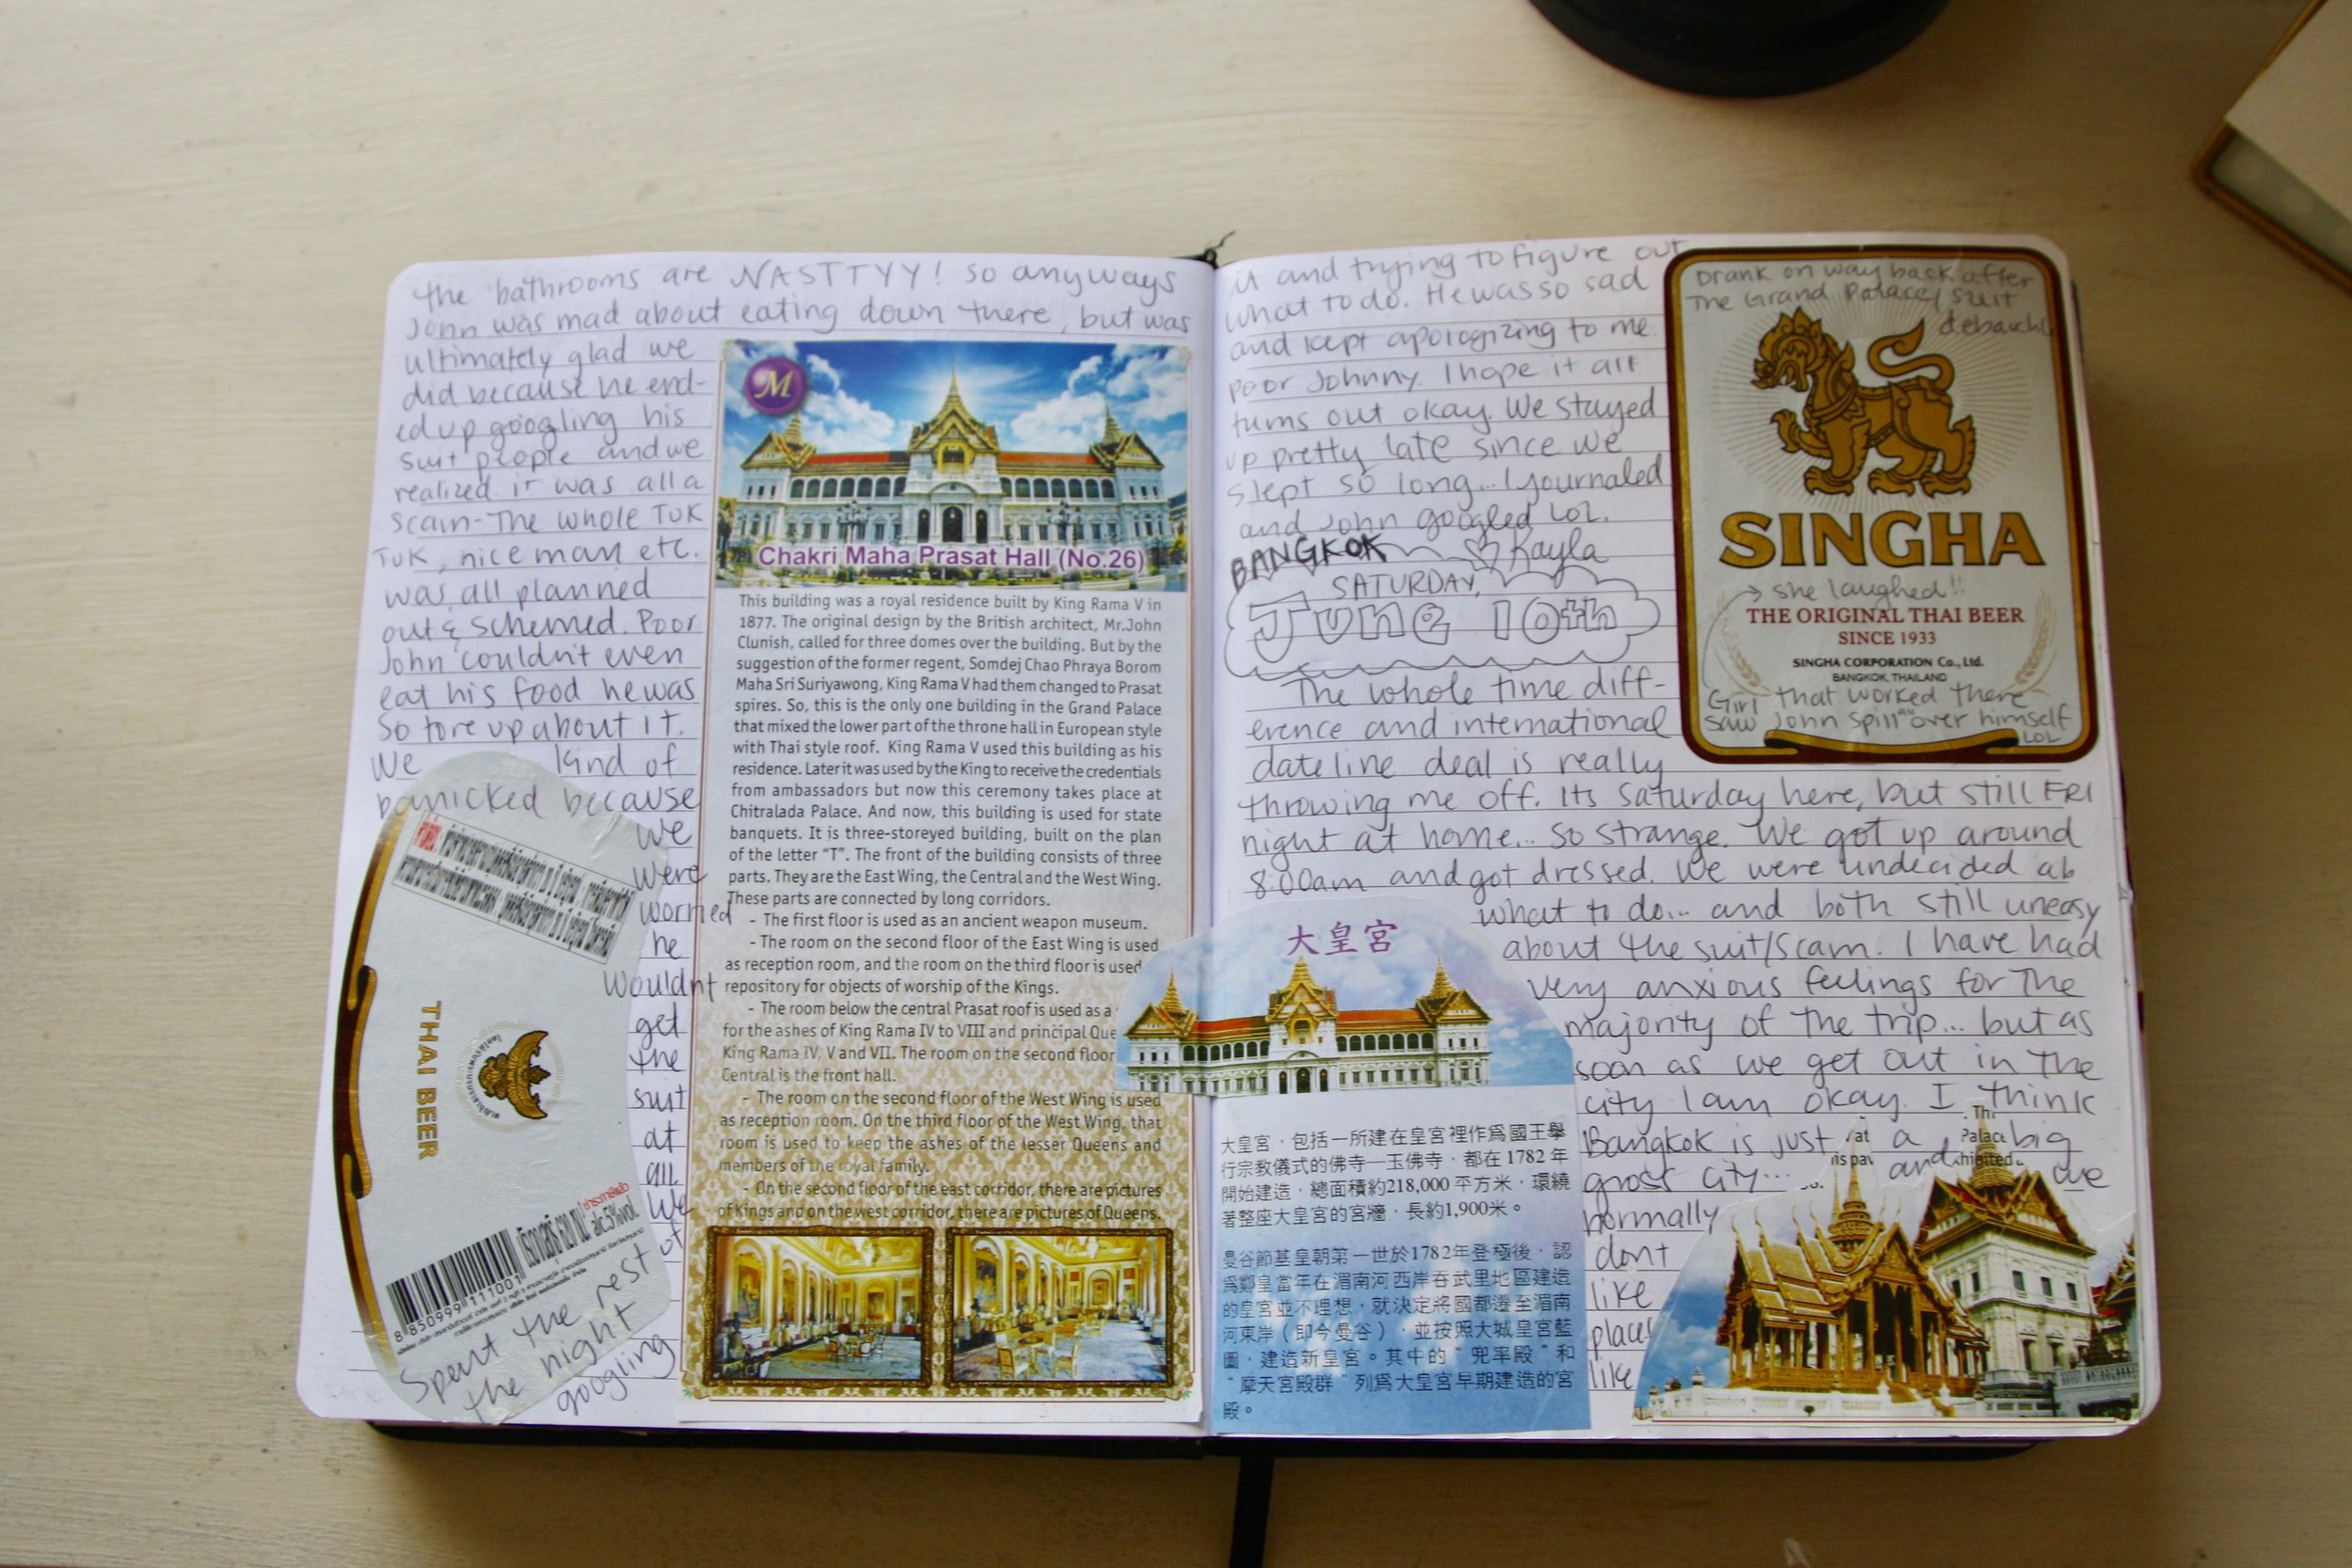 the bathrooms are NASTTYY! so anyways
John was mad about eating down there, but was
ultimately glad we
did because he end-
ed up googling his
suit people and we
realized it was all a
scam - The whole TUK
TUK, nice man etc.
was all planned
out & schemed. Poor
John couldn't even
eat his food he was
so tore up about it.
We kind of
panicked because
we
were
worried
he
wouldnt
get
the
suit
at
all
We
THAI BEER
alc.5%vol.
8 850999 111001
Spent the rest
the night
googling
M
Chakri Maha Prasat Hall (No.26)
This building was a royal residence built by King Rama V in
1877. The original design by the British architect, Mr.John
Clunish, called for three domes over the building. But by the
suggestion of the former regent, Somdej Chao Phraya Borom
Maha Sri Suriyawong, King Rama V had them changed to Prasat
spires. So, this is the only one building in the Grand Palace
that mixed the lower part of the throne hall in European style
with Thai style roof. King Rama V used this building as his
residence. Later it was used by the King to receive the credentials
from ambassadors but now this ceremony takes place at
Chitralada Palace. And now, this building is used for state
banquets. It is three-storeyed building, built on the plan
of the letter "T". The front of the building consists of three
parts. They are the East Wing, the Central and the West Wing.
These parts are connected by long corridors.
- The first floor is used as an ancient weapon museum.
- The room on the second floor of the East Wing is used
as reception room, and the room on the third floor is used
repository for objects of worship of the Kings.
- The room below the central Prasat roof is used as a
for the ashes of King Rama IV to VIII and principal Que
King Rama IV, V and VII. The room on the second floor
Central is the front hall.
- The room on the second floor of the West Wing is used
as reception room. On the third floor of the West Wing, that
room is used to keep the ashes of the lesser Queens and
members of the royal family.
- On the second floor of the east corridor, there are pictures
of Kings and on the west corridor, there are pictures of Queens.
it and trying to figure out
what to do. He was so sad
and kept apologizing to me.
poor Johnny. I hope it all
turns out okay. We stayed
up pretty late since we
slept so long... I journaled
and John googled LOL.
BANGKOK ♡ Kayla
SATURDAY,
June 10th
The whole time diff-
erence and international
date line deal is really
throwing me off. Its Saturday here, but still FRI
night at home... so strange. We got up around
8:00am and got dressed. We were undecided ab
what to do... and both still uneasy
about the suit/scam. I have had
very anxious feelings for the
majority of the trip... but as
soon as we get out in the
city I am okay. I think
Bangkok is just a big
gross city... and we
normally
dont
like
places
like
Drank on way back after
The Grand Palace/suit
SINGHA
she laughed!!
THE ORIGINAL THAI BEER
SINCE 1933
SINGHA CORPORATION Co., Ltd.
BANGKOK, THAILAND
Girl that worked there
saw John spill over himself
LOL
大皇宮
大皇宮，包括一所建在皇宮裡作爲國王舉
行宗教儀式的佛寺—玉佛寺，都在1782年
開始建造，總面積約218,000平方米，環繞
著整座大皇宮的宮牆，長約1,900米。
曼谷節基皇朝第一世於1782年登極後，認
爲鄭皇當年在湄南河西岸吞武里地區建造
的皇宮並不理想，就決定將國都遷至湄南
河東岸（即今曼谷），並按照大城皇宮藍
圖，建造新皇宮。其中的"兜率殿"和
"摩天宮殿群"列爲大皇宮早期建造的宮
殿。